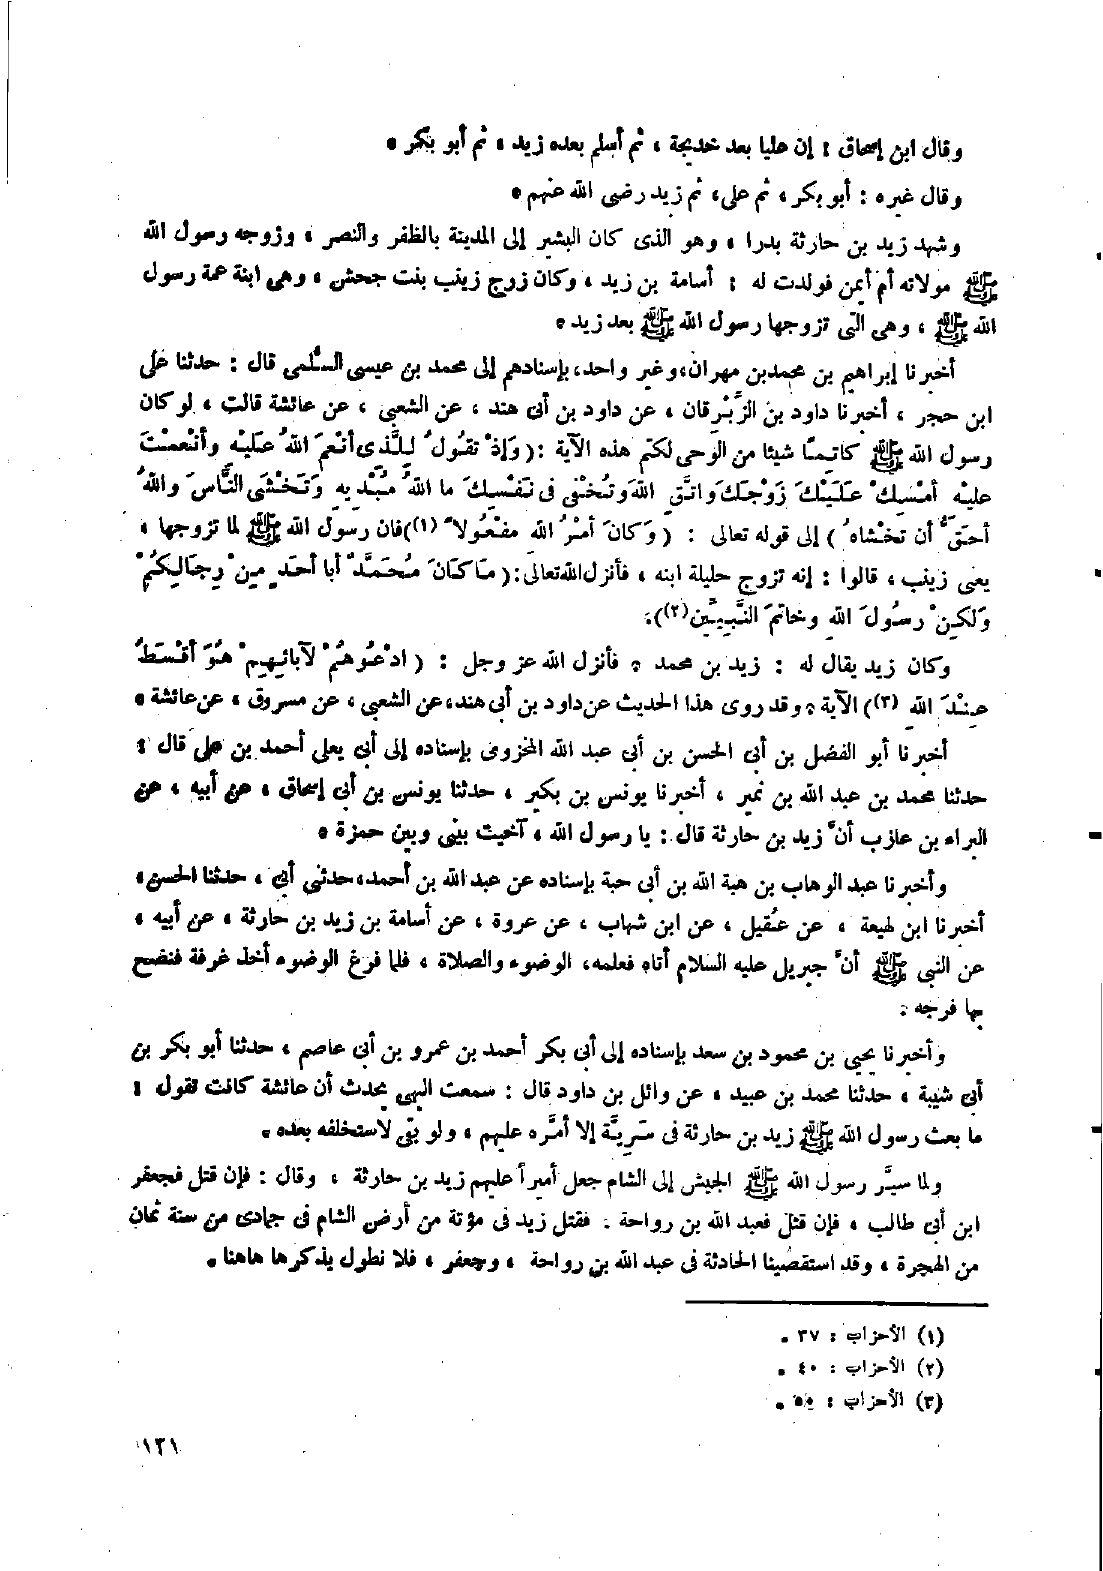 وقال ابن إسحاق : إن عليا بعد خديجة ، ثم أسلم بعده زيد ، ثم أبو بكر .
وقال غيره : أبو بكر ، ثم على ، ثم زيد رضى الله عنهم .
وشهد زيد بن حارثة بدرا ، وهو الذى كان البشير إلى المدينة بالظفر والنصر ، وزوجه رسول الله
ﷺ مولاته أم أيمن فولدت له : أسامة بن زيد ، وكان زوج زينب بنت جحش ، وهى ابنة عمة رسول
الله ﷺ ، وهى التى تزوجها رسول الله ﷺ بعد زيد .
أخبرنا إبراهيم بن محمد بن مهران ، وغير واحد ، بإسنادهم إلى محمد بن عيسى السُّلمى قال : حدثنا على
ابن حجر ، أخبرنا داود بن الزِّبْرِقان ، عن داود بن أبى هند ، عن الشعبى ، عن عائشة قالت ، لو كان
رسول الله ﷺ كاتِمًا شيئا من الوحى لكتم هذه الآية : ( وَإِذْ تَقُولُ لِلَّذِى أَنْعَمَ اللهُ عَلَيْهِ وأَنْعَمْتَ
عليه أَمْسِكْ عَلَيْكَ زَوْجَكَ وَاتَّقِ اللهَ وَتُخْفِى فى نَفْسِكَ ما اللهُ مُبْدِيهِ وَتَخْشَى النَّاسَ واللهُ
أحَقُّ أن تَخْشَاهُ ) إلى قوله تعالى : ( وَكَانَ أَمْرُ اللهِ مفْعُولاً (١)) فان رسول الله ﷺ لما تزوجها ،
يعنى زينب ، قالوا : إنه تزوج حليلة ابنه ، فأنزل الله تعالى : ( مَا كَانَ مُحَمَّدٌ أبا أَحَدٍ مِنْ رِجَالِكُمْ
وَلَكِنْ رسُولَ اللهِ وخاتَمَ النَّبِيِّين (٢)) .
وكان زيد يقال له : زيد بن محمد . فأنزل الله عز وجل : ( ادْعُوهُمْ لآبائِهِمْ هُوَ أَقْسَطُ
عِنْدَ اللهِ (٣)) الآية . وقد روى هذا الحديث عن داود بن أبى هند ، عن الشعبى ، عن مسروق ، عن عائشة .
أخبرنا أبو الفضل بن أبى الحسن بن أبى عبد الله المخزومى بإسناده إلى أبى يعلى أحمد بن على قال :
حدثنا محمد بن عبد الله بن نمير ، أخبرنا يونس بن بكير ، حدثنا يونس بن أبى إسحاق ، عن أبيه ، عن
البراء بن عازب أنَّ زيد بن حارثة قال : يا رسول الله ، آخيت بينى وبين حمزة .
وأخبرنا عبد الوهاب بن هبة الله بن أبى حبة بإسناده عن عبد الله بن أحمد ، حدثنى أبى ، حدثنا الحسن ،
أخبرنا ابن لهيعة ، عن عُقيل ، عن ابن شهاب ، عن عروة ، عن أسامة بن زيد بن حارثة ، عن أبيه ،
عن النبى ﷺ أنَّ جبريل عليه السلام أتاه فعلمه ، الوضوء والصلاة ، فلما فرغ الوضوء أخذ غرفة فنضح
بها فرجه .
وأخبرنا يحيى بن محمود بن سعد بإسناده إلى أبى بكر أحمد بن عمرو بن أبى عاصم ، حدثنا أبو بكر بن
أبى شيبة ، حدثنا محمد بن عبيد ، عن وائل بن داود قال : سمعت البهى يحدث أن عائشة كانت تقول :
ما بعث رسول الله ﷺ زيد بن حارثة فى سَرِيَّة إلا أمَّره عليهم ، ولو بقى لاستخلفه بعده .
ولما سيَّر رسول الله ﷺ الجيش إلى الشام جعل أميراً عليهم زيد بن حارثة ، وقال : فإن قتل فجعفر
ابن أبى طالب ، فإن قتل فعبد الله بن رواحة . فقتل زيد فى مؤتة من أرض الشام فى جمادى من سنة ثمان
من الهجرة ، وقد استقصينا الحادثة فى عبد الله بن رواحة ، وجعفر ، فلا نطول بذكرها هاهنا .
(١) الأحزاب : ٣٧ .
(٢) الأحزاب : ٤٠ .
(٣) الأحزاب : ٥٥ .
١٣١